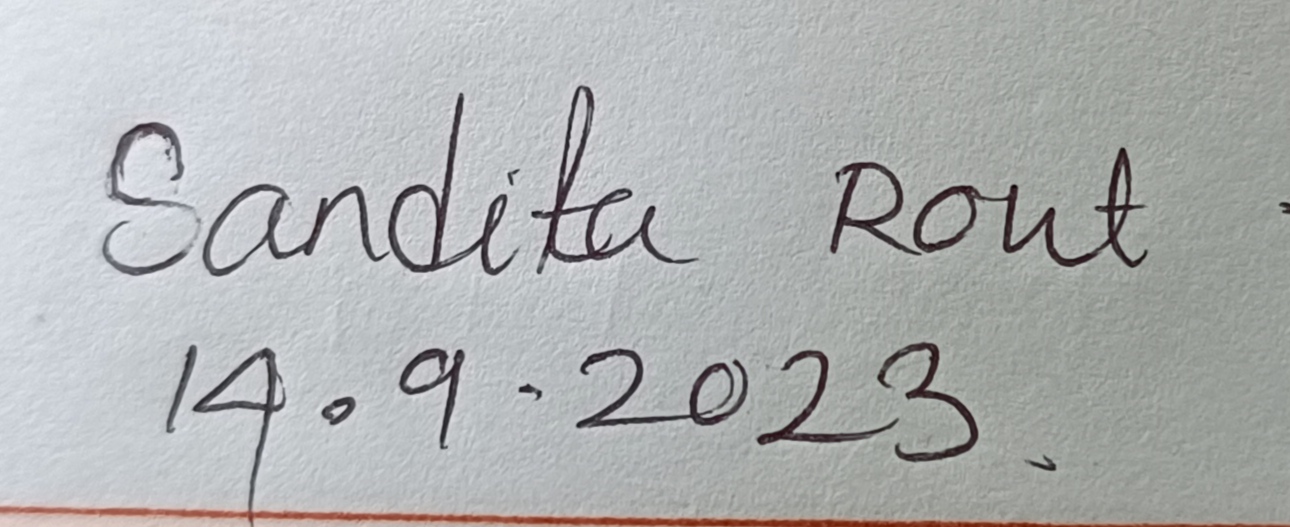 Sandita Rout
14.9.2023.